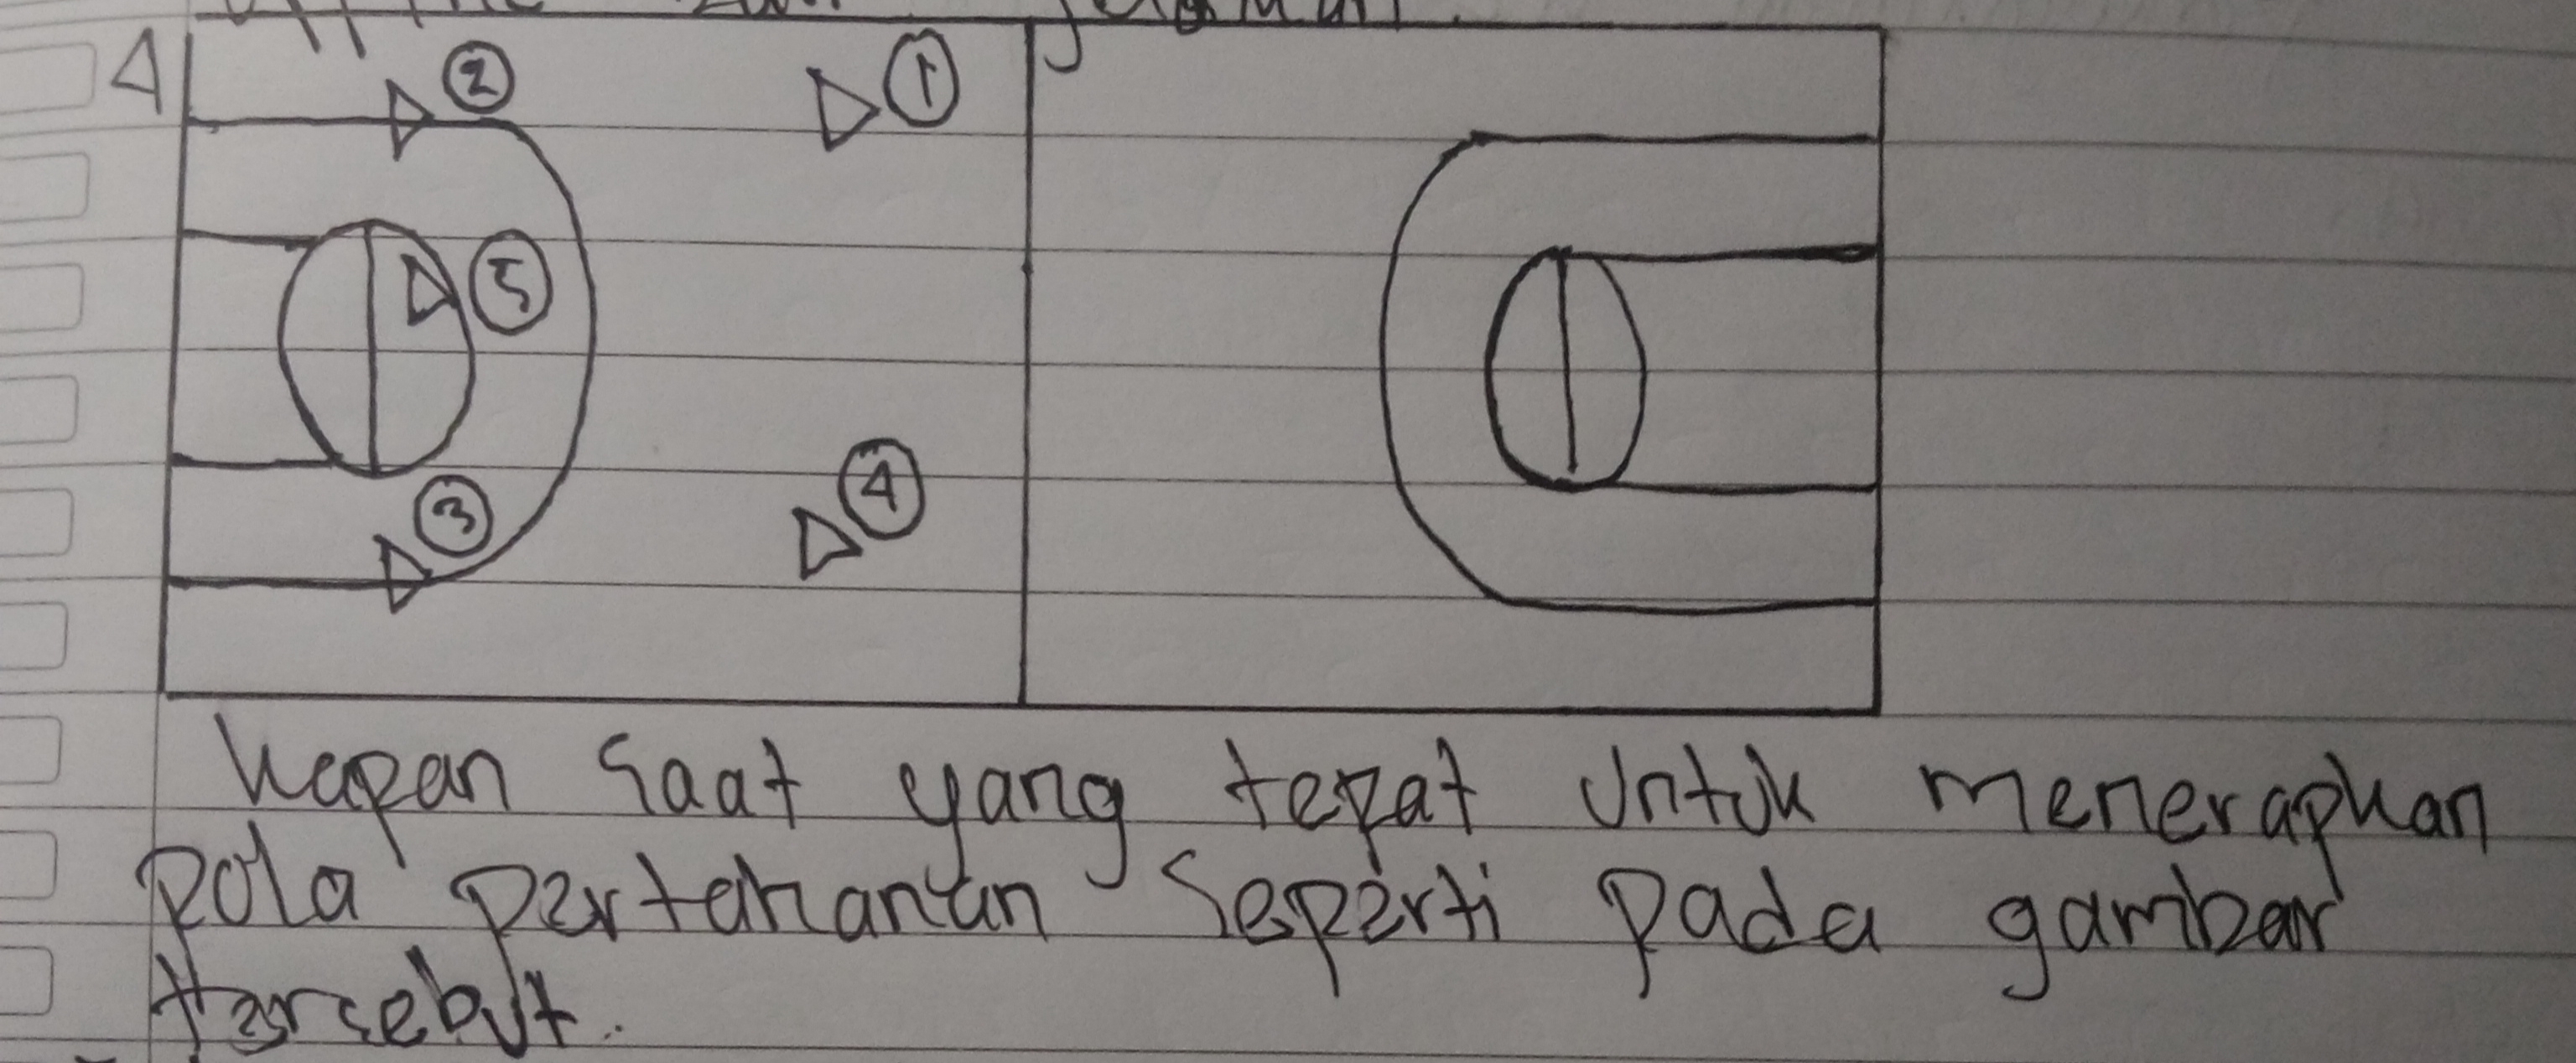 4
②
①
⑤
③
④
Kapan saat yang tepat untuk menerapkan
pola pertahanan seperti pada gambar
tersebut.